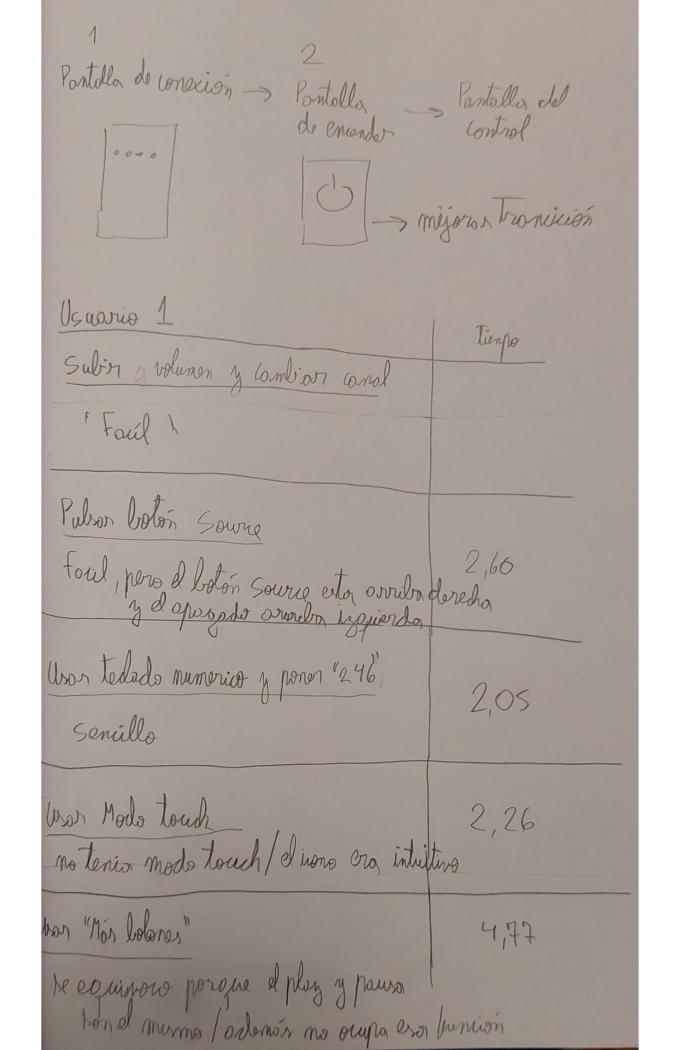 1
Pantalla de conexión →
2
Pantalla
de encender
→ Pantalla del
control
→ mejorar Trancición
Usuario 1
Tiempo
Subir volumen y cambiar canal
"Facíl"
Pulsar botón Source
2,60
facil, pero el botón source esta arriba derecha
y el apagado arriba izquierda
Usar teclado numerico y poner "246"
2,05
Sencillo
Usar Modo touch
2,26
no tenia modo touch/el icono era intuitivo
usar "Más botones"
4,77
se equivoco porque el play y pausa
son el mismo/además no ocupa esa función